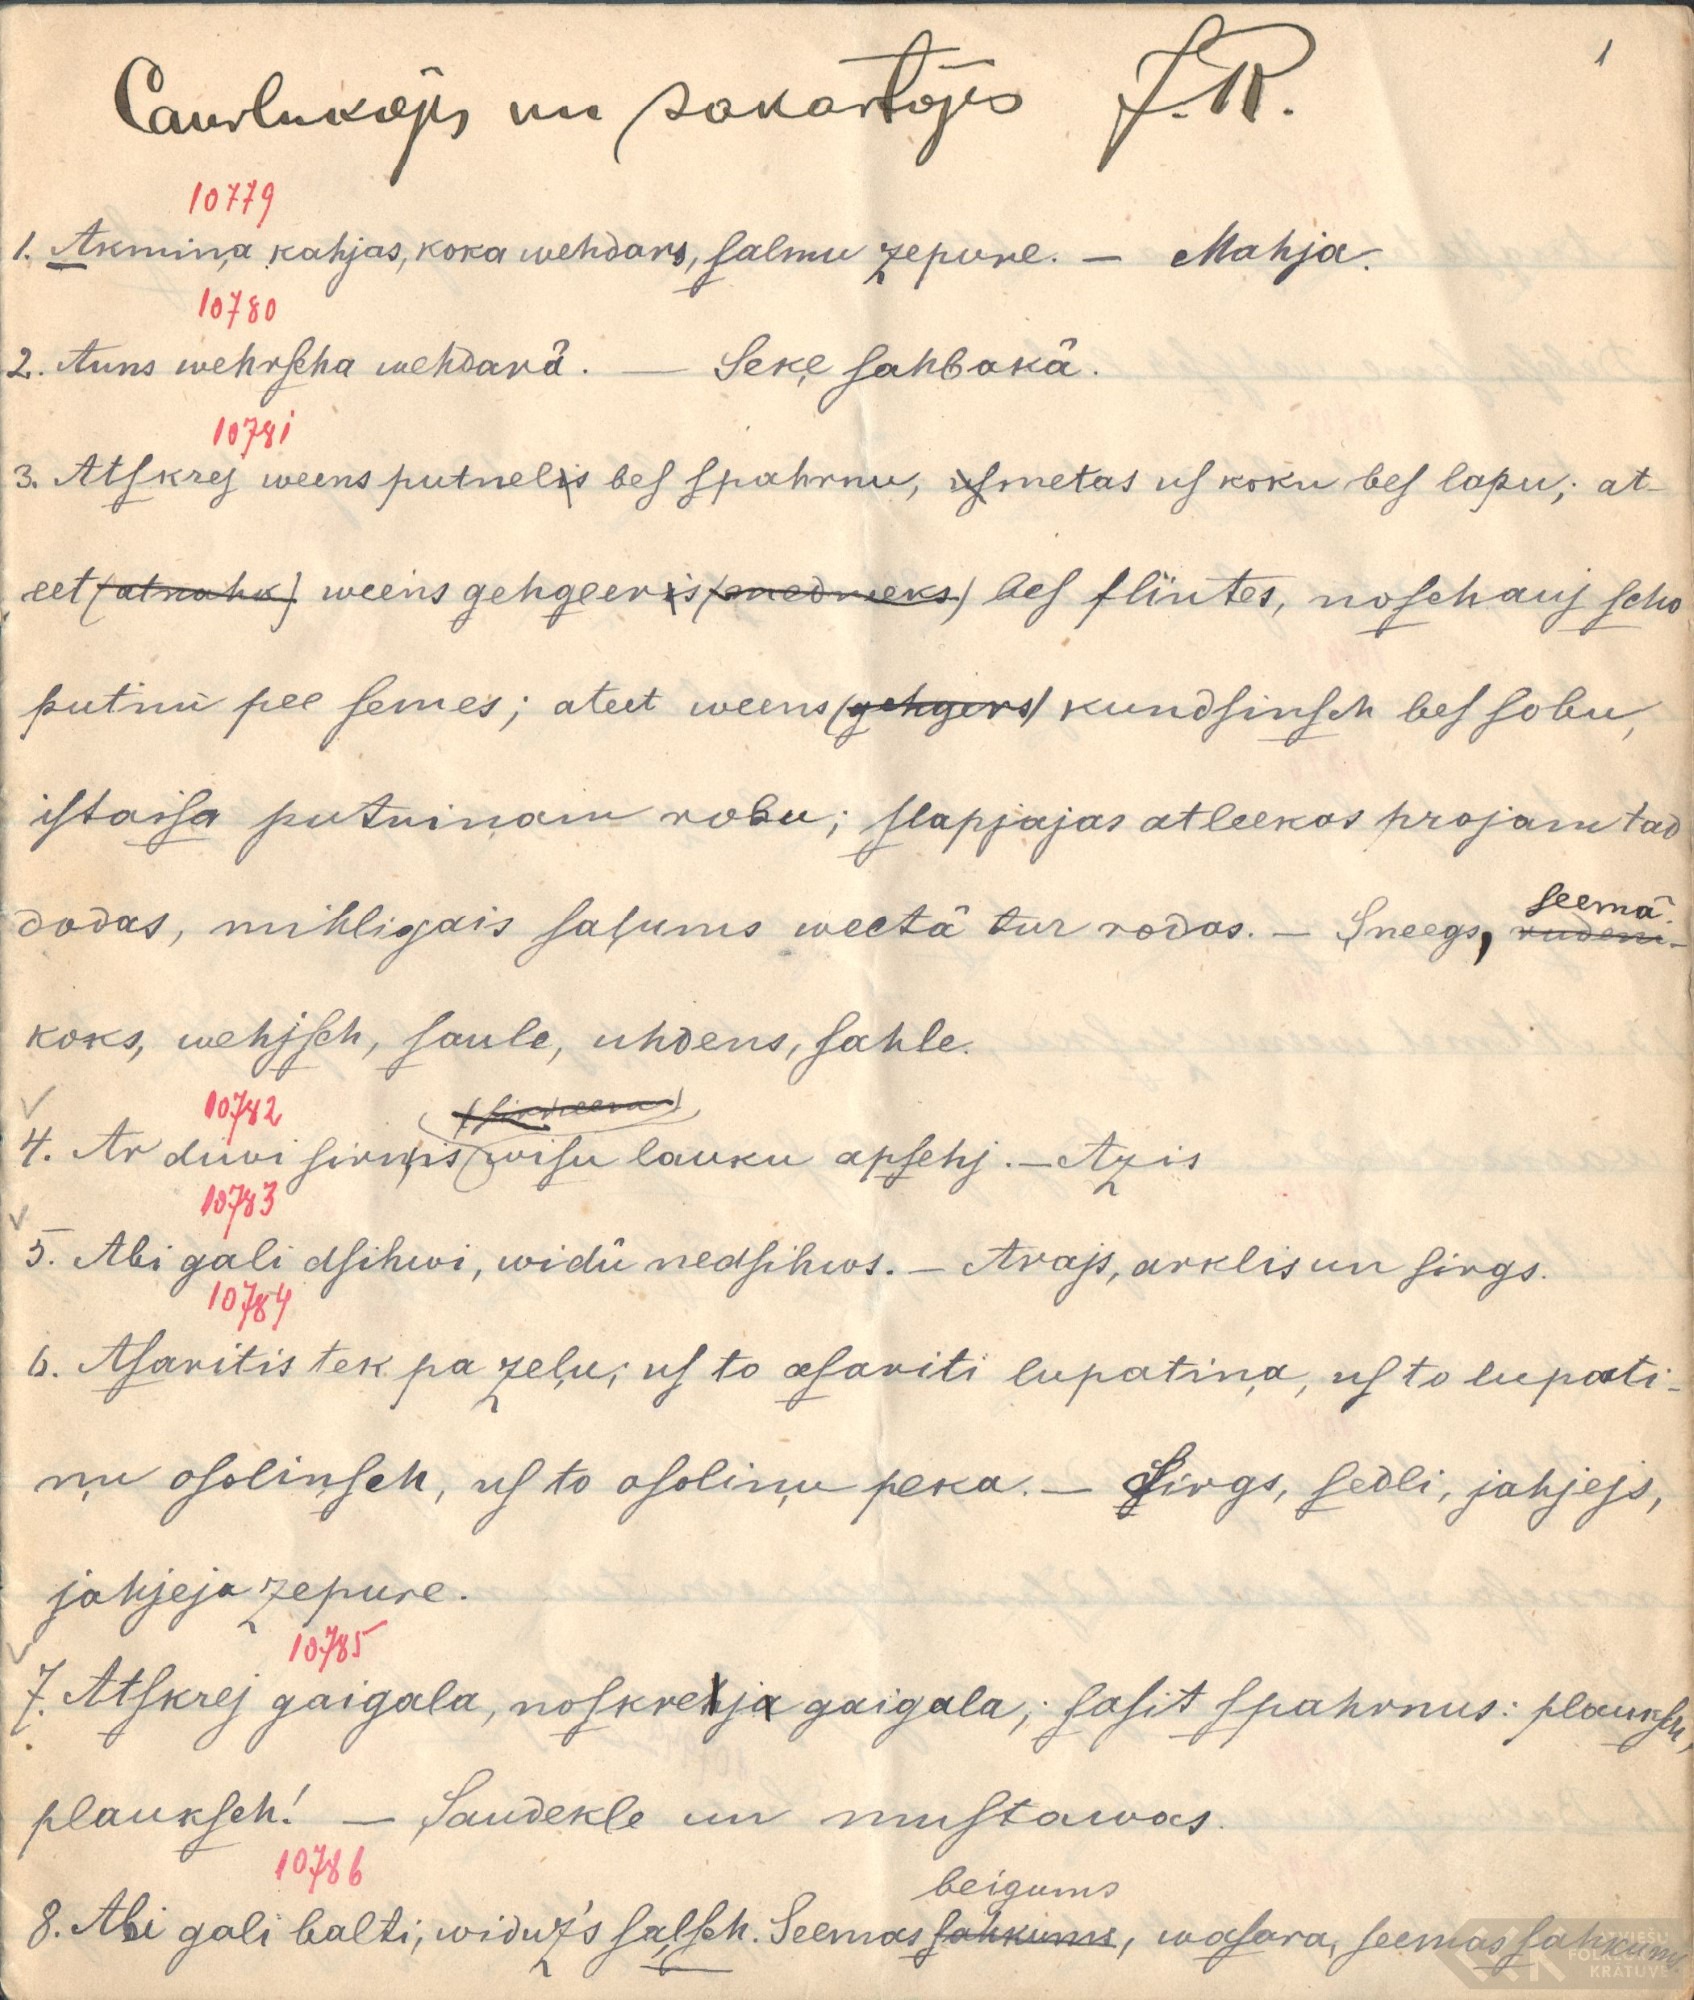 Caurlukojis un sakārtojis J. R.
1
10779
1. Akmiņa kahjas, koka wehdars, ſalmu zepure. — Mahja.
10780
2. Auns wehrſcha wehdarâ. — Seķe ſahbakâ.
10781
3. Atſkrej weens putnelis beſ ſpahrnu, uſmetas uſ koku beſ lapu; at-
eet (atnahk) weens gehgeeris (medneeks) beſ flintes, noſchauj ſcho
putnu pee ſemes; ateet weens (gehgers) kundſinſch beſ ſobu,
iſtaiſa putniņam robu; ſlapjajas atleekas projam tad
dodas, mihligais ſaļums weetâ tur rodas. — Sneegs, rudeni ſeemâ.
koks, wehjſch, ſaule, uhdens, ſahle.
10782
4. Ar diwi ſirnis wiſu lauku apſehj. — Azis
10783
5. Abi gali dſihwi, widû nedſihws. — Arajs, arklis un ſirgs.
10784
6. Aſaritis tek pa zeļu; uſ to aſariti lupatiņa, uſ to lupati-
ņu oſoliņſch, uſ to oſoliņu peka. — Sirgs, ſedli, jahjejs,
jahjeja zepure.
10785
7. Atſkrej gaigala, noſkrehja gaigala; ſaſit ſpahrnus: plaukſch,
plaukſch! — Saudekle un muſtawas.
10786
beigums
8. Abi gali balti, widuz's ſaļſch. Seemas ſahkums, waſara, ſeemas ſahkums.
LATVIEŠU
FOLKLORAS
KRĀTUVE